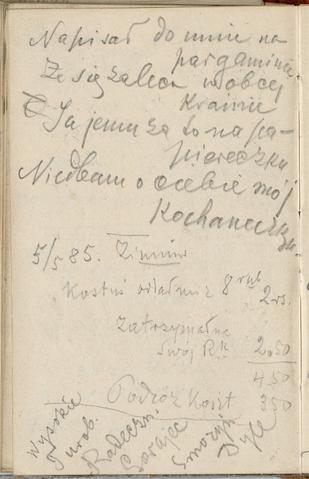 Napisał do mnie na
pargaminie
Że się zaleca w obcej
Krainie
Ja jemu za to na pa-
piereczku
Niedbam o ciebie mój
Kochaneczku
5/5 85. Zimnów
Kostuś 8 rub
2 rs.
Zatrzymałam
Swój Rk 2.50
4 50
Podróż Koszt 3 50
Wysokie
Turob.
Radeczn.
Gorajec
Dyle